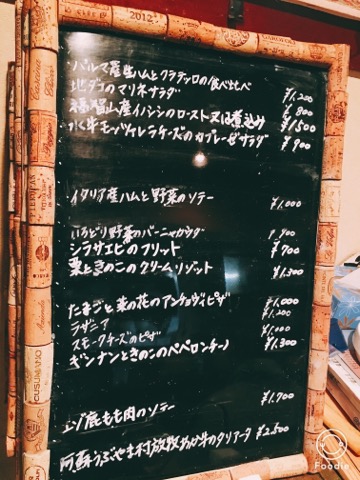 2012
・パルマ産生ハムとクラテッロの食べ比べ ¥1,200
・地ダコのマリネサラダ ¥800
・福岡山産イノシシのロースト又は煮込み ¥1,500
・水牛モッツァレラチーズのカプレーゼサラダ ¥900
・イタリア産ハムと野菜のソテー ¥1,000
・いろどり野菜のバーニャカウダ ¥900
シラサエビのフリット ¥700
栗ときのこのクリームリゾット ¥1,300
たまごと菜の花のアンチョヴィピザ ¥1,000
ラザニア ¥1,200
スモークチーズのピザ ¥1,000
ギンナンときのこのペペロンチーノ ¥1,300
エゾ鹿もも肉のソテー ¥1,700
阿蘇うぶやま村放牧あか牛のタリアータ ¥2,500
Foodie